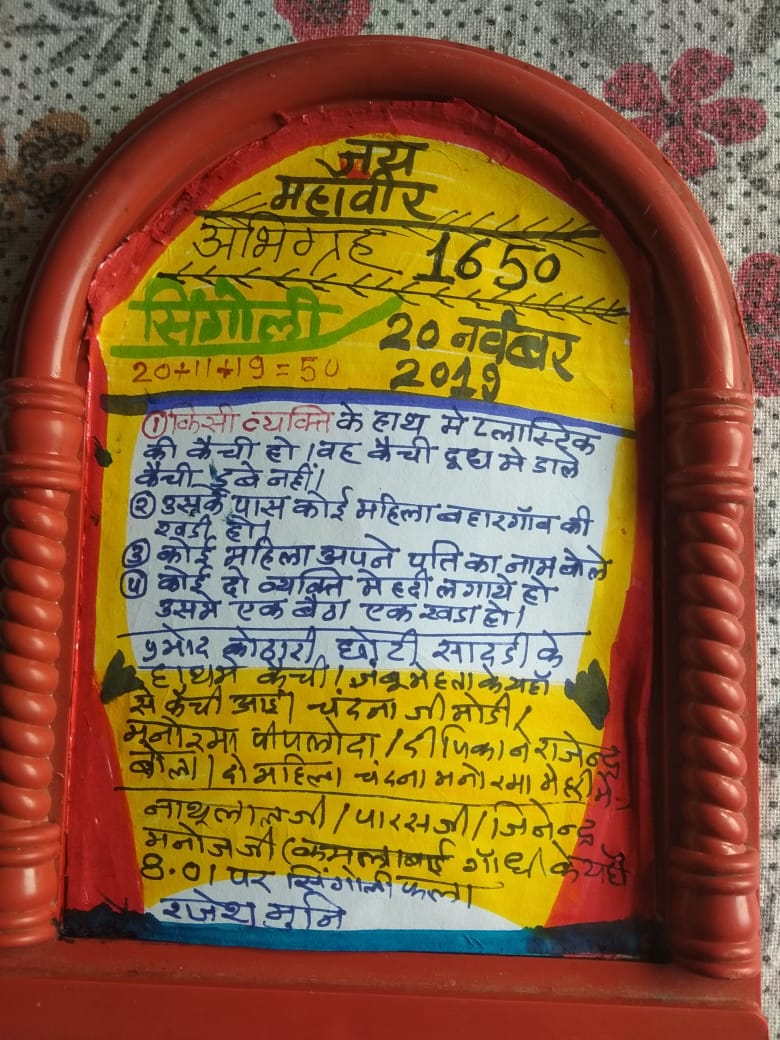 जय
महावीर
अभिग्रह 1650
सिंगोली
20 नवंबर
2019
20+11+19=50
① किसी व्यक्ति के हाथ मे प्लास्टिक
की कैची हो। वह कैची दूध मे डाले
कैची डुबे नहीं।
② उसके पास कोई महिला बहारगॉव की
खडी हो।
③ कोई महिला अपने पति का नाम बोले
④ कोई दो व्यक्ति मेहदी लगाये हो
उसमे एक बैठा एक खडा हो।
प्रमोद कोठारी छोटी सादडी के
हाथमे कैची। मेहता के यहॉ
से कैची आई। चंदना जी मोडी/
मनोरमा पीपलोदा/दीपिका ने राजेन्द्र
बोला। दो महिला चंदना मनोरमा मेहदी मे
नाथूलालजी/पारसजी/जिनेन्द्र
मनोजजी (कमलाबाई गॉधी के यहॉ
8.01 पर सिंगोली फला
राजेश मुनि